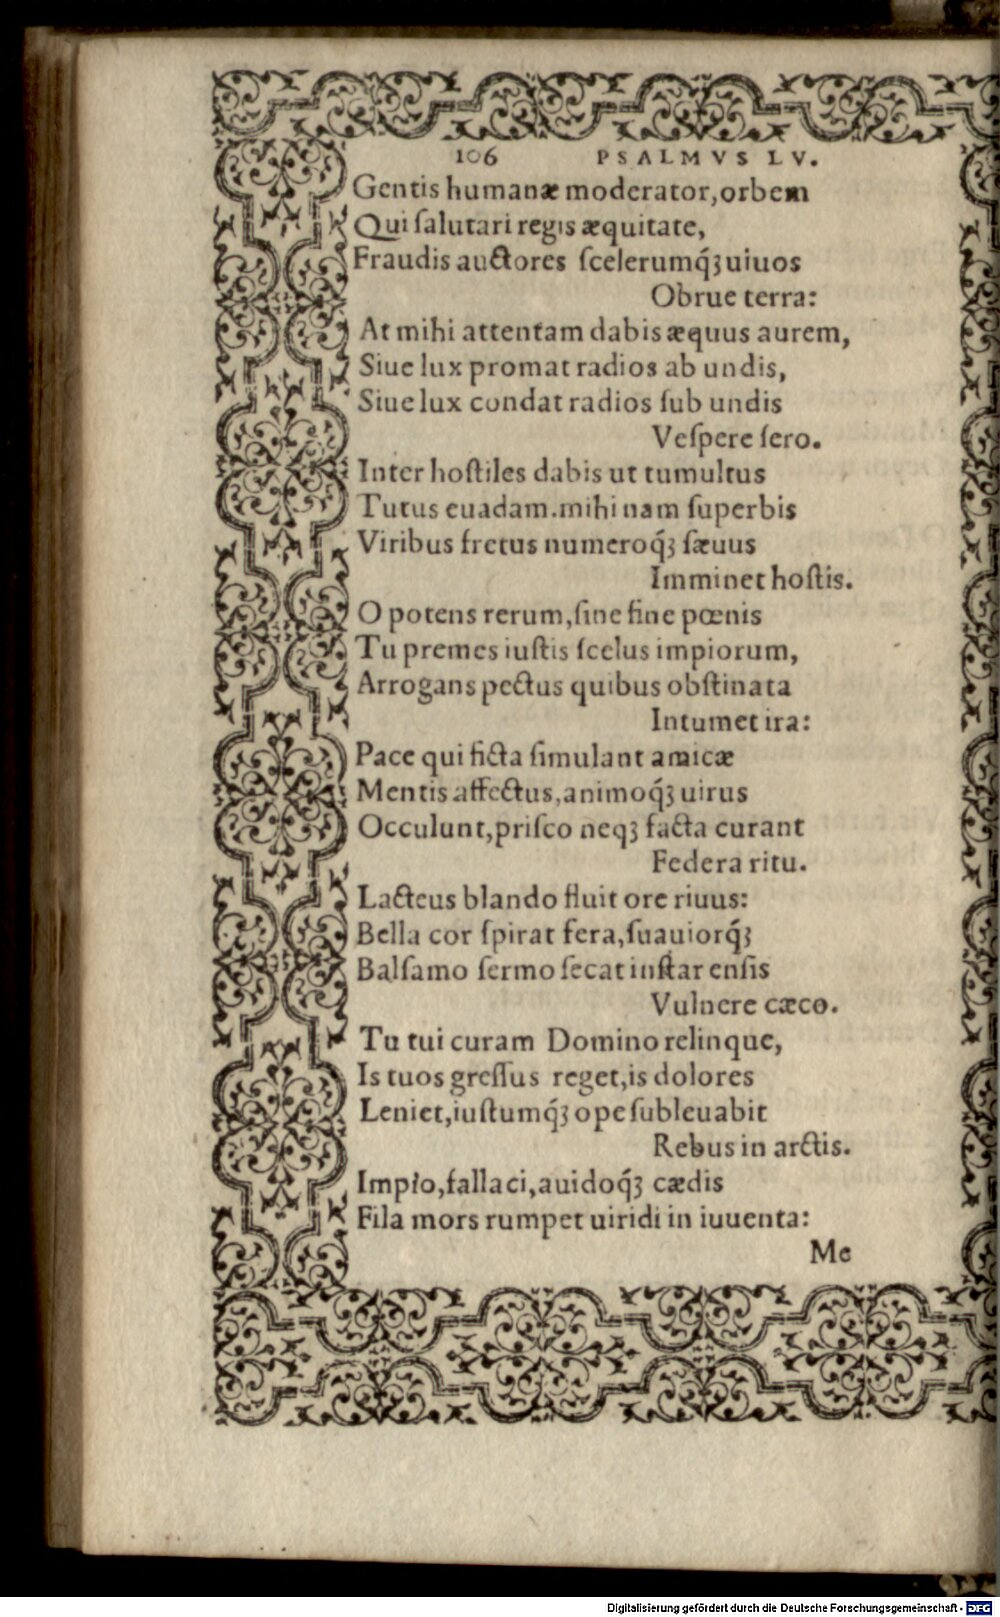 106 PSALMVS LV.
Gentis humanæ moderator, orbem
Qui ſalutari regis æquitate,
Fraudis auctores ſcelerumq́ꝫ uiuos
Obrue terra:
At mihi attentam dabis æquus aurem,
Siue lux promat radios ab undis,
Siue lux condat radios ſub undis
Veſpere ſero.
Inter hoſtiles dabis ut tumultus
Tutus euadam. mihi nam ſuperbis
Viribus fretus numeroq́ꝫ ſæuus
Imminet hoſtis.
O potens rerum, ſine fine pœnis
Tu premes iuſtis ſcelus impiorum,
Arrogans pectus quibus obſtinata
Intumet ira:
Pace qui ficta ſimulant amicæ
Mentis affectus, animoq́ꝫ uirus
Occulunt, priſco neqꝫ facta curant
Federa ritu.
Lacteus blando fluit ore riuus:
Bella cor ſpirat fera, ſuauiorq́ꝫ
Balſamo ſermo ſecat inſtar enſis
Vulnere cæco.
Tu tui curam Domino relinque,
Is tuos greſſus reget, is dolores
Leniet, iuſtumq́ꝫ ope ſubleuabit
Rebus in arctis.
Impio, fallaci, auidoq́ꝫ cædis
Fila mors rumpet uiridi in iuuenta:
Me
Digitalisierung gefördert durch die Deutsche Forschungsgemeinschaft - DFG